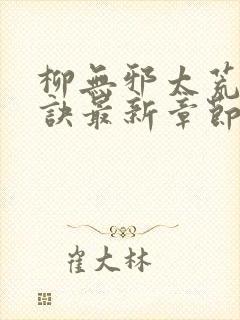 柳無邪太荒
訣最新章節
崔大林